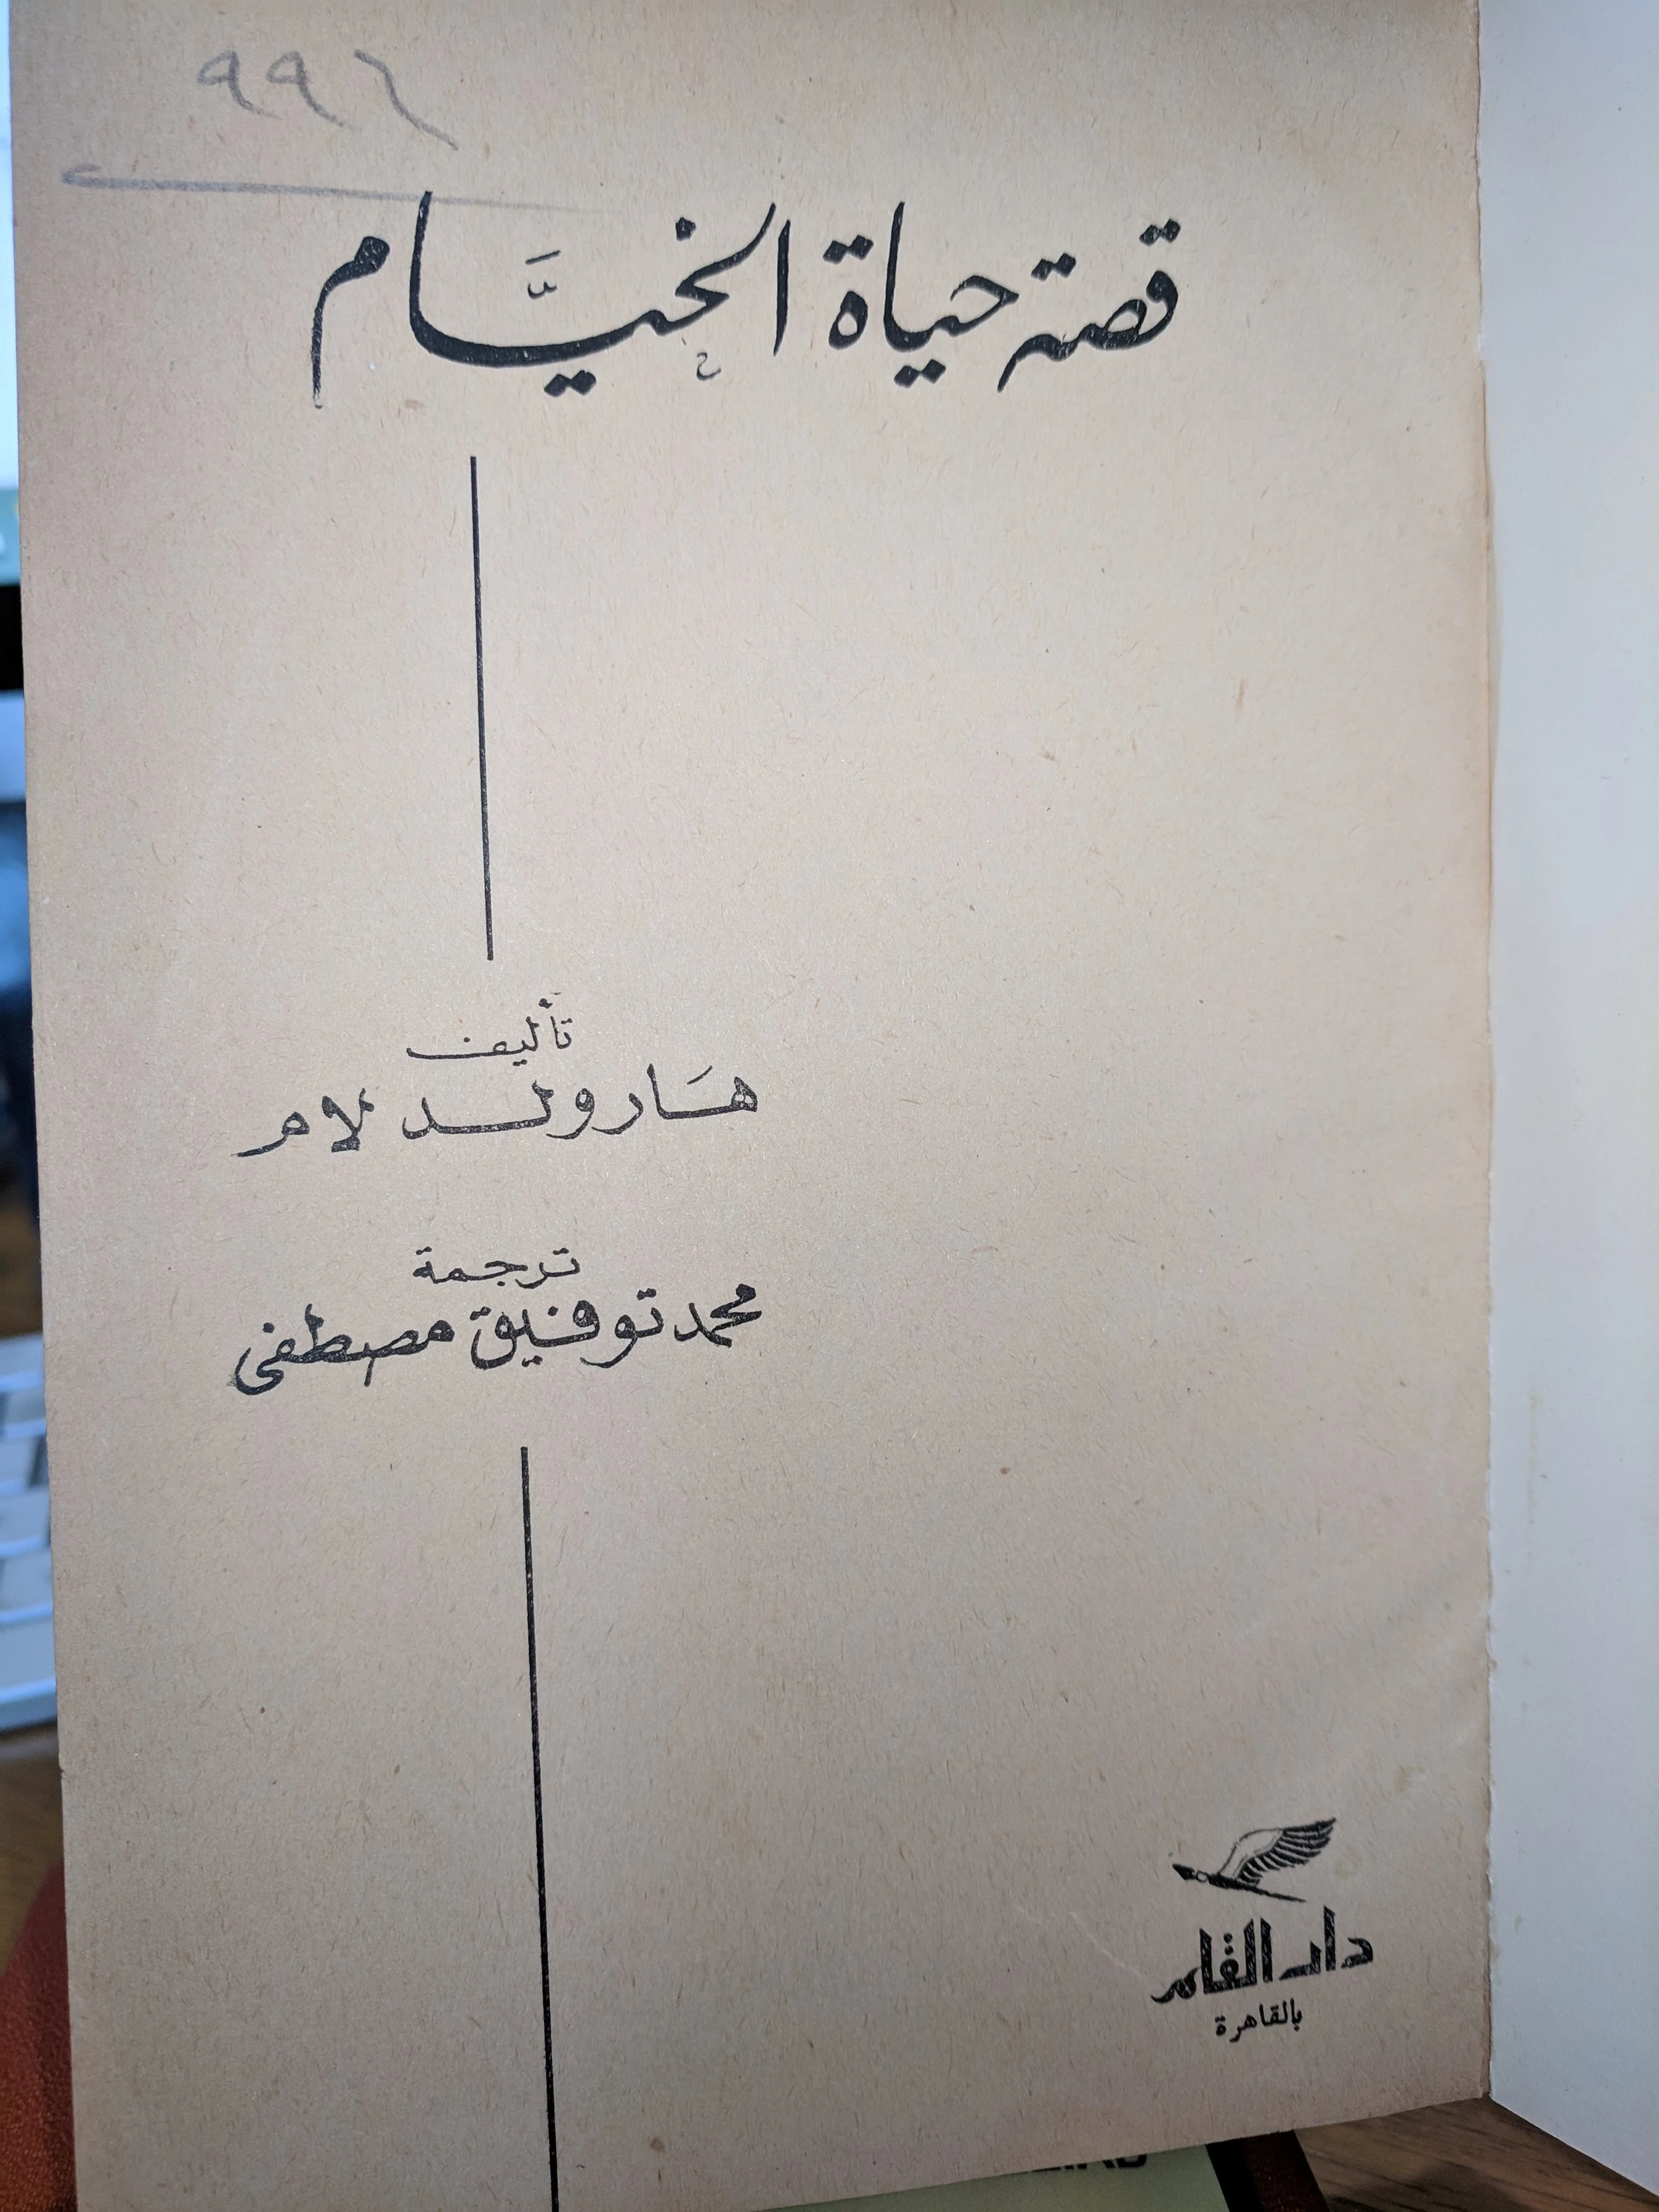 ٩٩٦
قصة حياة الخيَّام
تأليف
هَارولد لام
ترجمة
محمد توفيق مصطفى
دار القلم
بالقاهرة